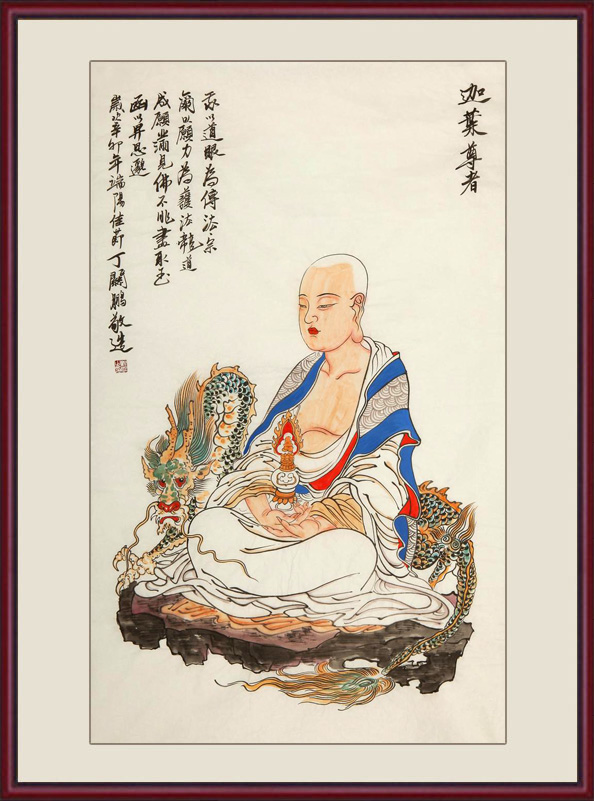 迦葉尊者
我以道眼為傳法宗
爾以願力為護法龍道
成願滿見佛不怍盡取玉
函以畀思邈
歲次辛卯年端陽佳節丁鵬敬造